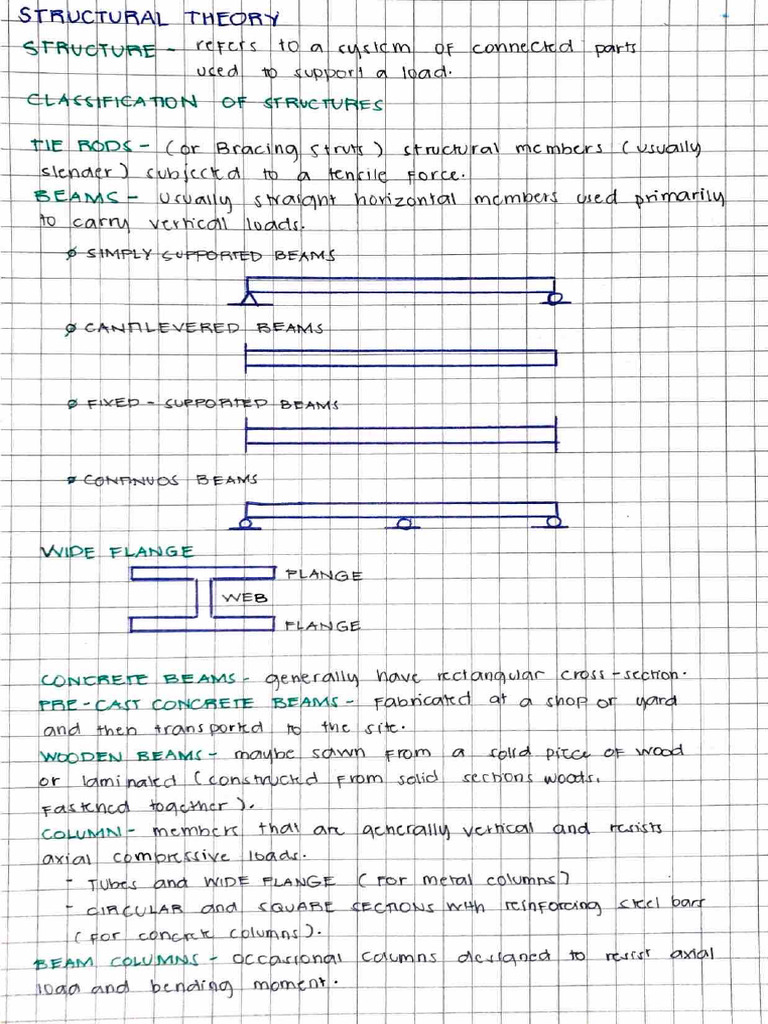 STRUCTURAL THEORY
STRUCTURE - refers to a system of connected parts
used to support a load.
CLASSIFICATION OF STRUCTURES
TIE RODS - (or Bracing Struts) structural members (usually
slender) subjected to a tencile force.
BEAMS - usually straight horizontal members used primarily
to carry vertical loads.
ø SIMPLY SUPPORTED BEAMS
ø CANTILEVERED BEAMS
ø FIXED - SUPPORTED BEAMS
ø CONTINUOS BEAMS
WIDE FLANGE
FLANGE
WEB
FLANGE
CONCRETE BEAMS - generally have rectangular cross-section.
PRE-CAST CONCRETE BEAMS - fabricated at a shop or yard
and then transported to the site.
WOODEN BEAMS - maybe sawn from a solid piece of wood
or laminated (constructed from solid sections woods,
fastened together).
COLUMN - members that are generally vertical and resists
axial compressive loads.
- TUBES and WIDE FLANGE (for metal columns)
- CIRCULAR and SQUARE SECTIONS with reinforcing steel bars
(for concrete columns).
BEAM COLUMNS - occasional columns designed to resist axial
load and bending moment.